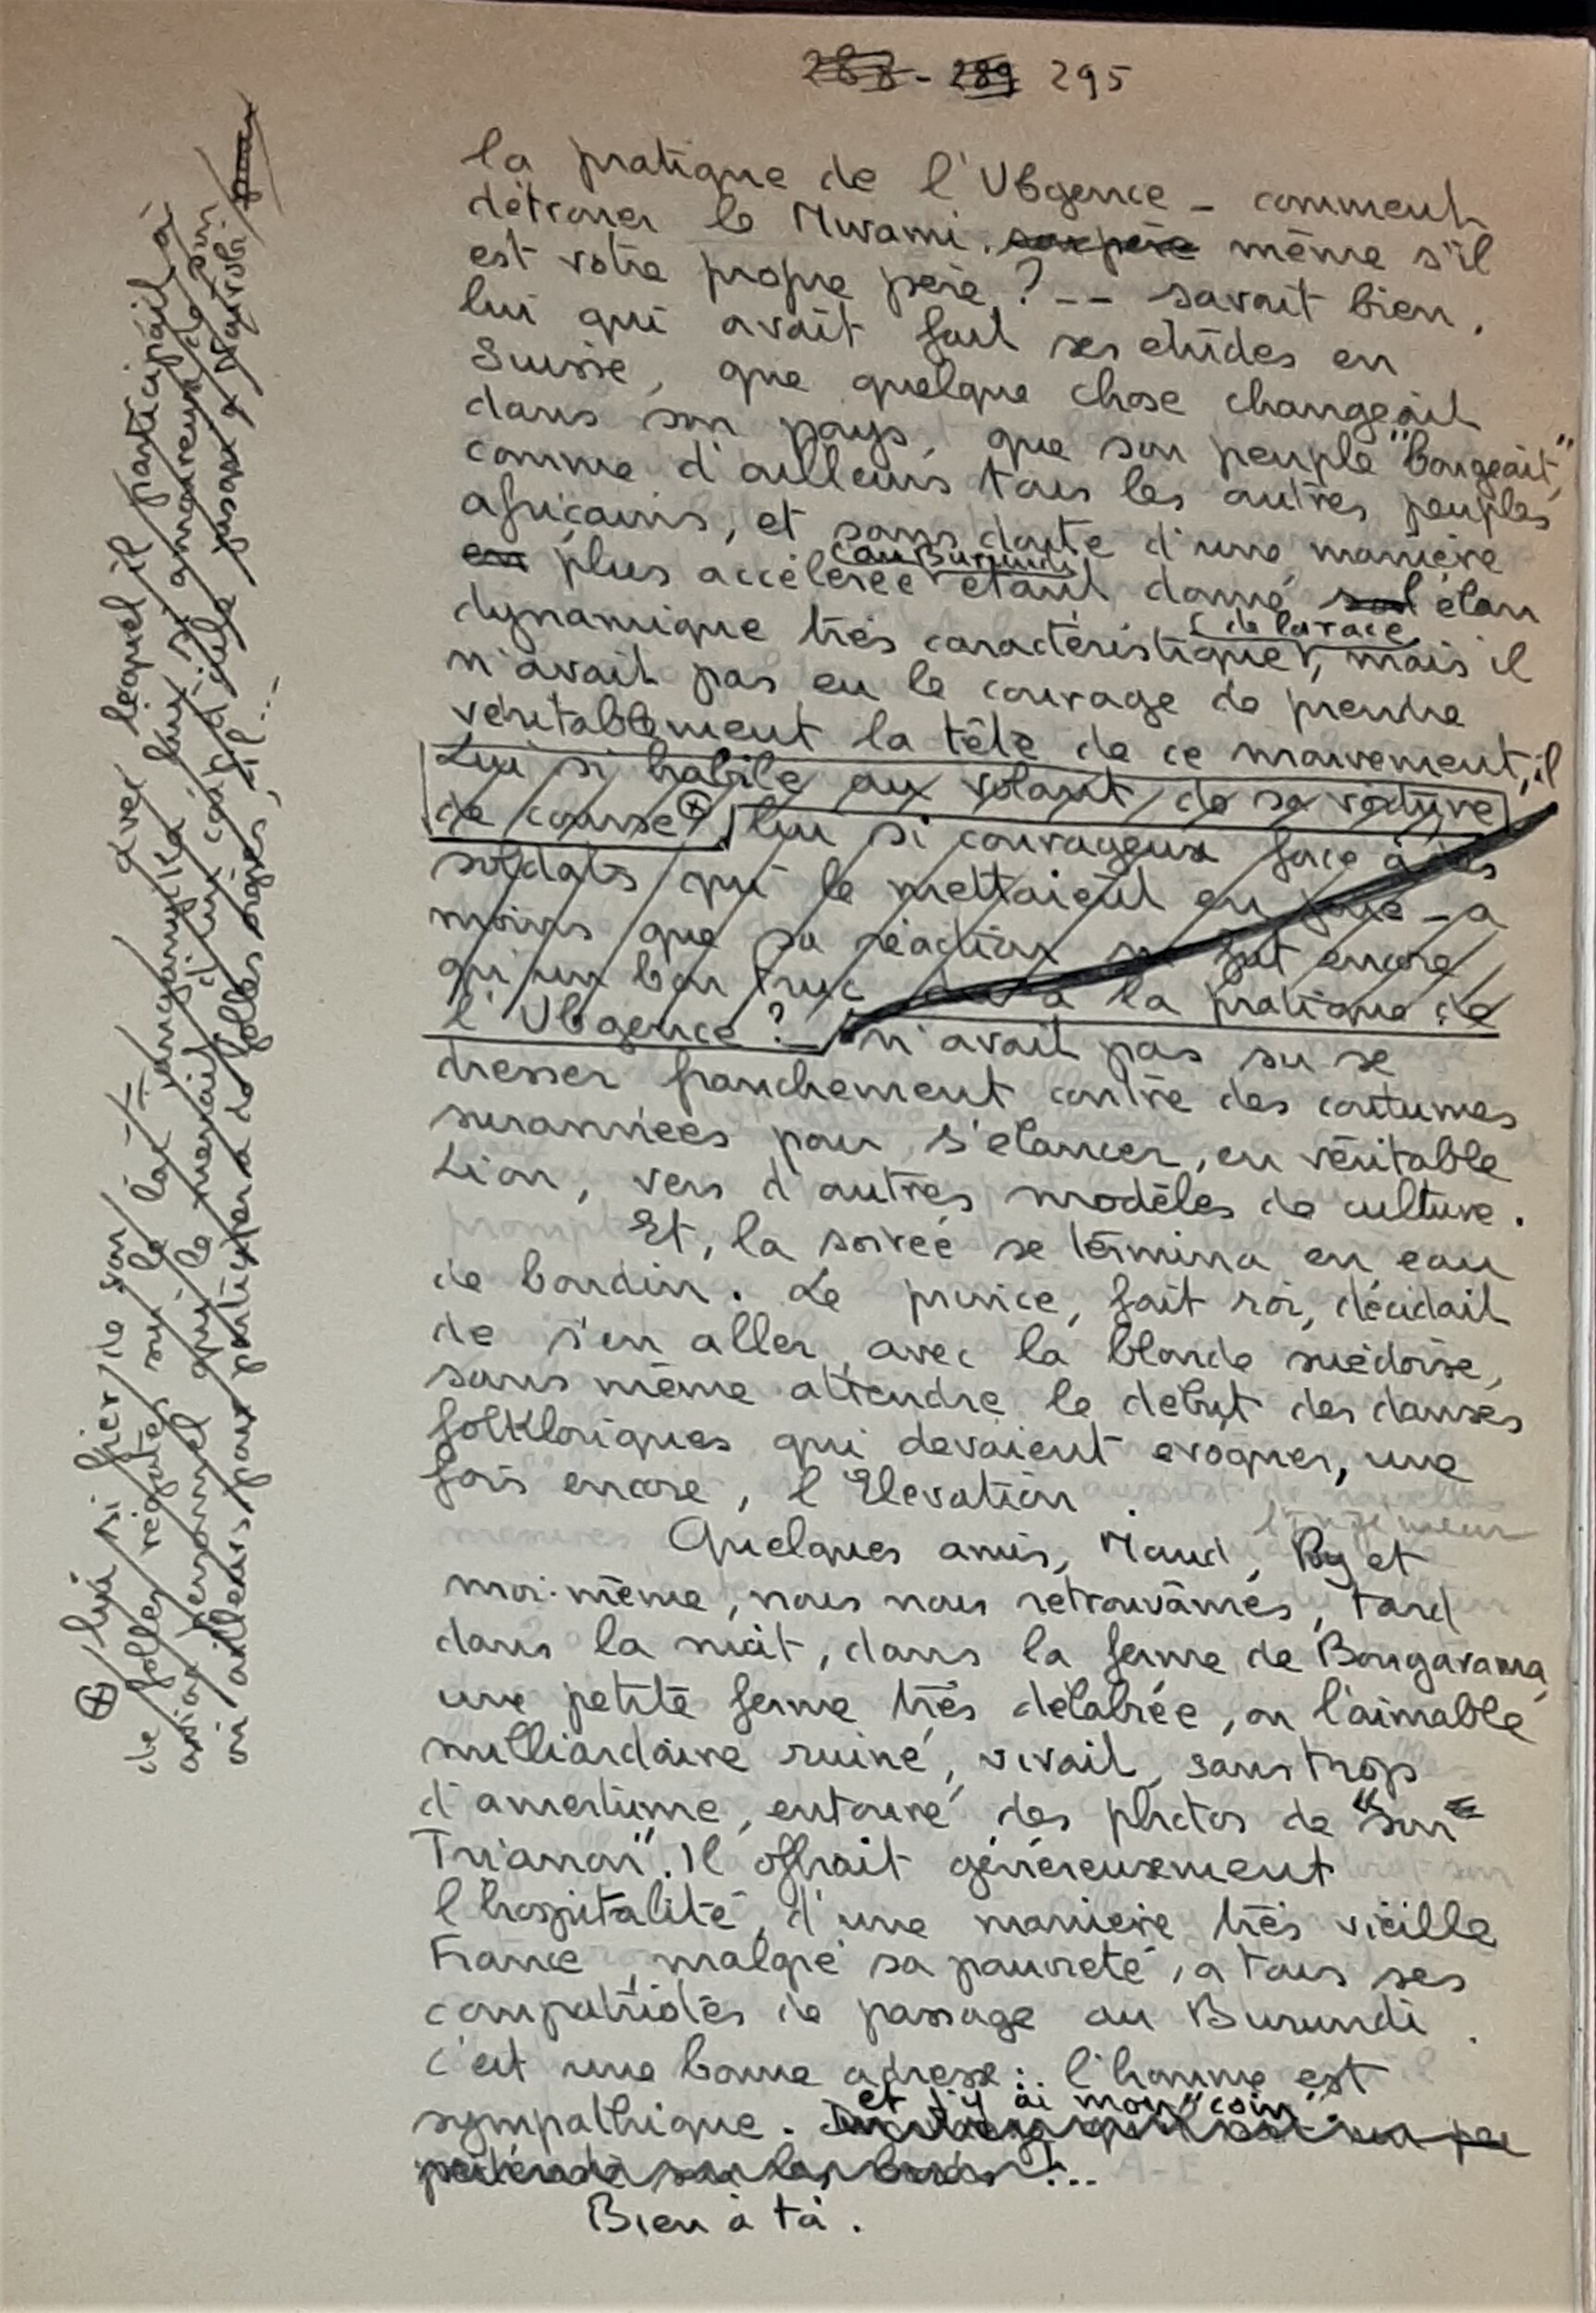 288 - 289 295
la pratique de l'Ubgence - comment
détroner le Mwami. son père même s'il
est votre propre père ? -- savait bien,
lui qui avait fait ses études en
Suisse, que quelque chose changeait
dans son pays, que son peuple "bougeait",
comme d'ailleurs tous les autres peuples
africains, et sans doute d'une manière
en plus accélérée au Burundi étant donné son élan
dynamique très caractéristique de la race, mais il
n'avait pas eu le courage de prendre
véritablement la tête de ce mouvement, il
Lui si habile au volant de sa voiture
de course ⊕, lui si courageux face à des
soldats qui le mettaient en joue - à
moins que sa réaction ne fut encore
qu'un bon truc dû à la pratique de
l'Ubgence ? - n'avait pas su se
dresser franchement contre des coutumes
surannées pour s'élancer, en véritable
Lion, vers d'autres modèles de culture.
Et, la soirée se termina en eau
de boudin. Le prince, fait roi, décidait
de s'en aller, avec la blonde suédoise,
sans même attendre le début des danses
folkloriques qui devaient évoquer, une
fois encore, l'Elevation.
l'ingénieur
Quelques amis, Maud, Puy et
moi-même, nous nous retrouvâmes, tard
dans la nuit, dans la ferme de Bougarama,
une petite ferme très délabrée, où l'aimable
milliardaire ruiné, vivait, sans trop
d'amertume, entouré des photos de "son
Trianon". Il offrait généreusement
l'hospitalité, d'une manière très vieille
France, malgré sa pauvreté, à tous ses
compatriotes de passage au Burundi.
C'est une bonne adresse : l'homme est
sympathique. et j'y ai mon "coin".
...
Bien à toi.
⊕ lui si fier de son avec lequel il participait à
de folles régates sur le lac Tanganyika, lui si amoureux de son
avion personnel qui le menait d'un coup d'aile jusqu'à Nairobi
ou ailleurs pour participer à de folles orgies, -il...